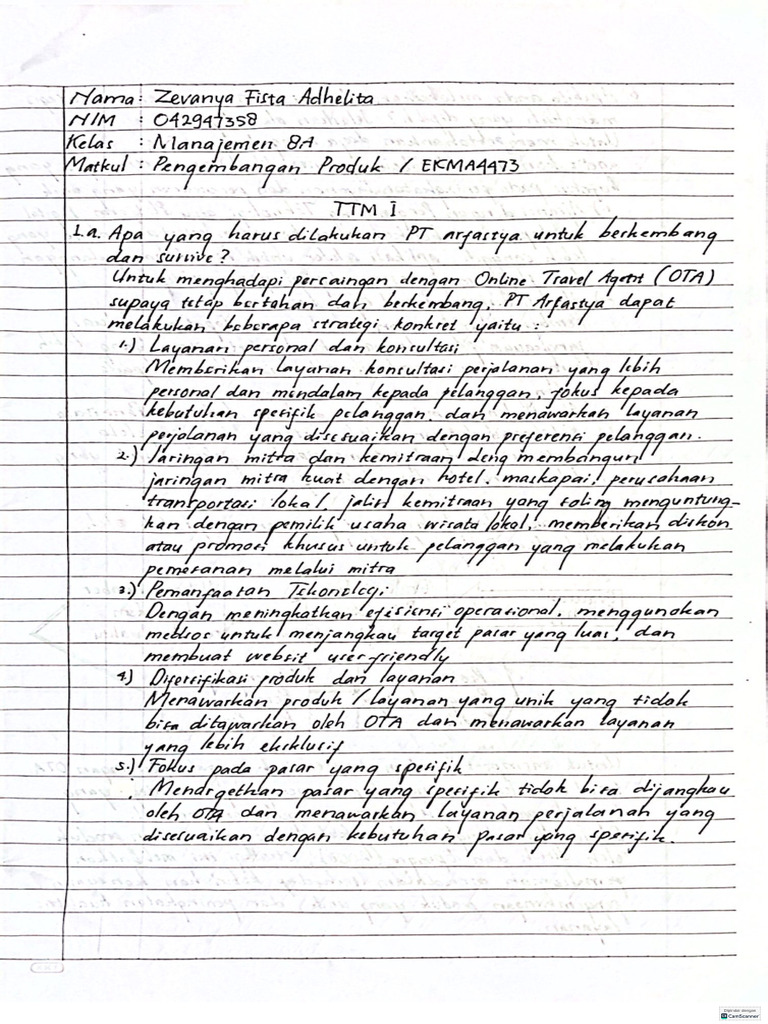 Nama : Zevanya Fista Adhelita
NIM : 042947358
Kelas : Manajemen 8A
Matkul : Pengembangan Produk / EKMA4473
TTM I
1.a. Apa yang harus dilakukan PT arfastya untuk berkembang
dan survive?
Untuk menghadapi persaingan dengan Online Travel Agent (OTA)
supaya tetap bertahan dan berkembang, PT Arfastya dapat
melakukan beberapa strategi konkret yaitu :
1.) Layanan personal dan konsultasi
Memberikan layanan konsultasi perjalanan yang lebih
personal dan mendalam kepada pelanggan, fokus kepada
kebutuhan spesifik pelanggan, dan menawarkan layanan
perjalanan yang disesuaikan dengan preferensi pelanggan.
2.) Jaringan mitra dan kemitraan deng membangun
jaringan mitra kuat dengan hotel, maskapai, perusahaan
transportasi lokal, jalin kemitraan yang saling menguntung-
kan dengan pemilik usaha wisata lokal, memberikan diskon
atau promosi khusus untuk pelanggan yang melakukan
pemesanan melalui mitra
3.) Pemanfaatan Teknologi
Dengan meningkatkan efisiensi operasional, menggunakan
medsos untuk menjangkau target pasar yang luas, dan
membuat websit user-friendly
4.) Diversifikasi produk dan layanan
Menawarkan produk / layanan yang unik yang tidak
bisa ditawarkan oleh OTA dan menawarkan layanan
yang lebih eksklusif
5.) Fokus pada pasar yang spesifik
Menargetkan pasar yang spesifik tidak bisa dijangkau
oleh OTA dan menawarkan layanan perjalanan yang
disesuaikan dengan kebutuhan pasar yang spesifik.
CamScanner